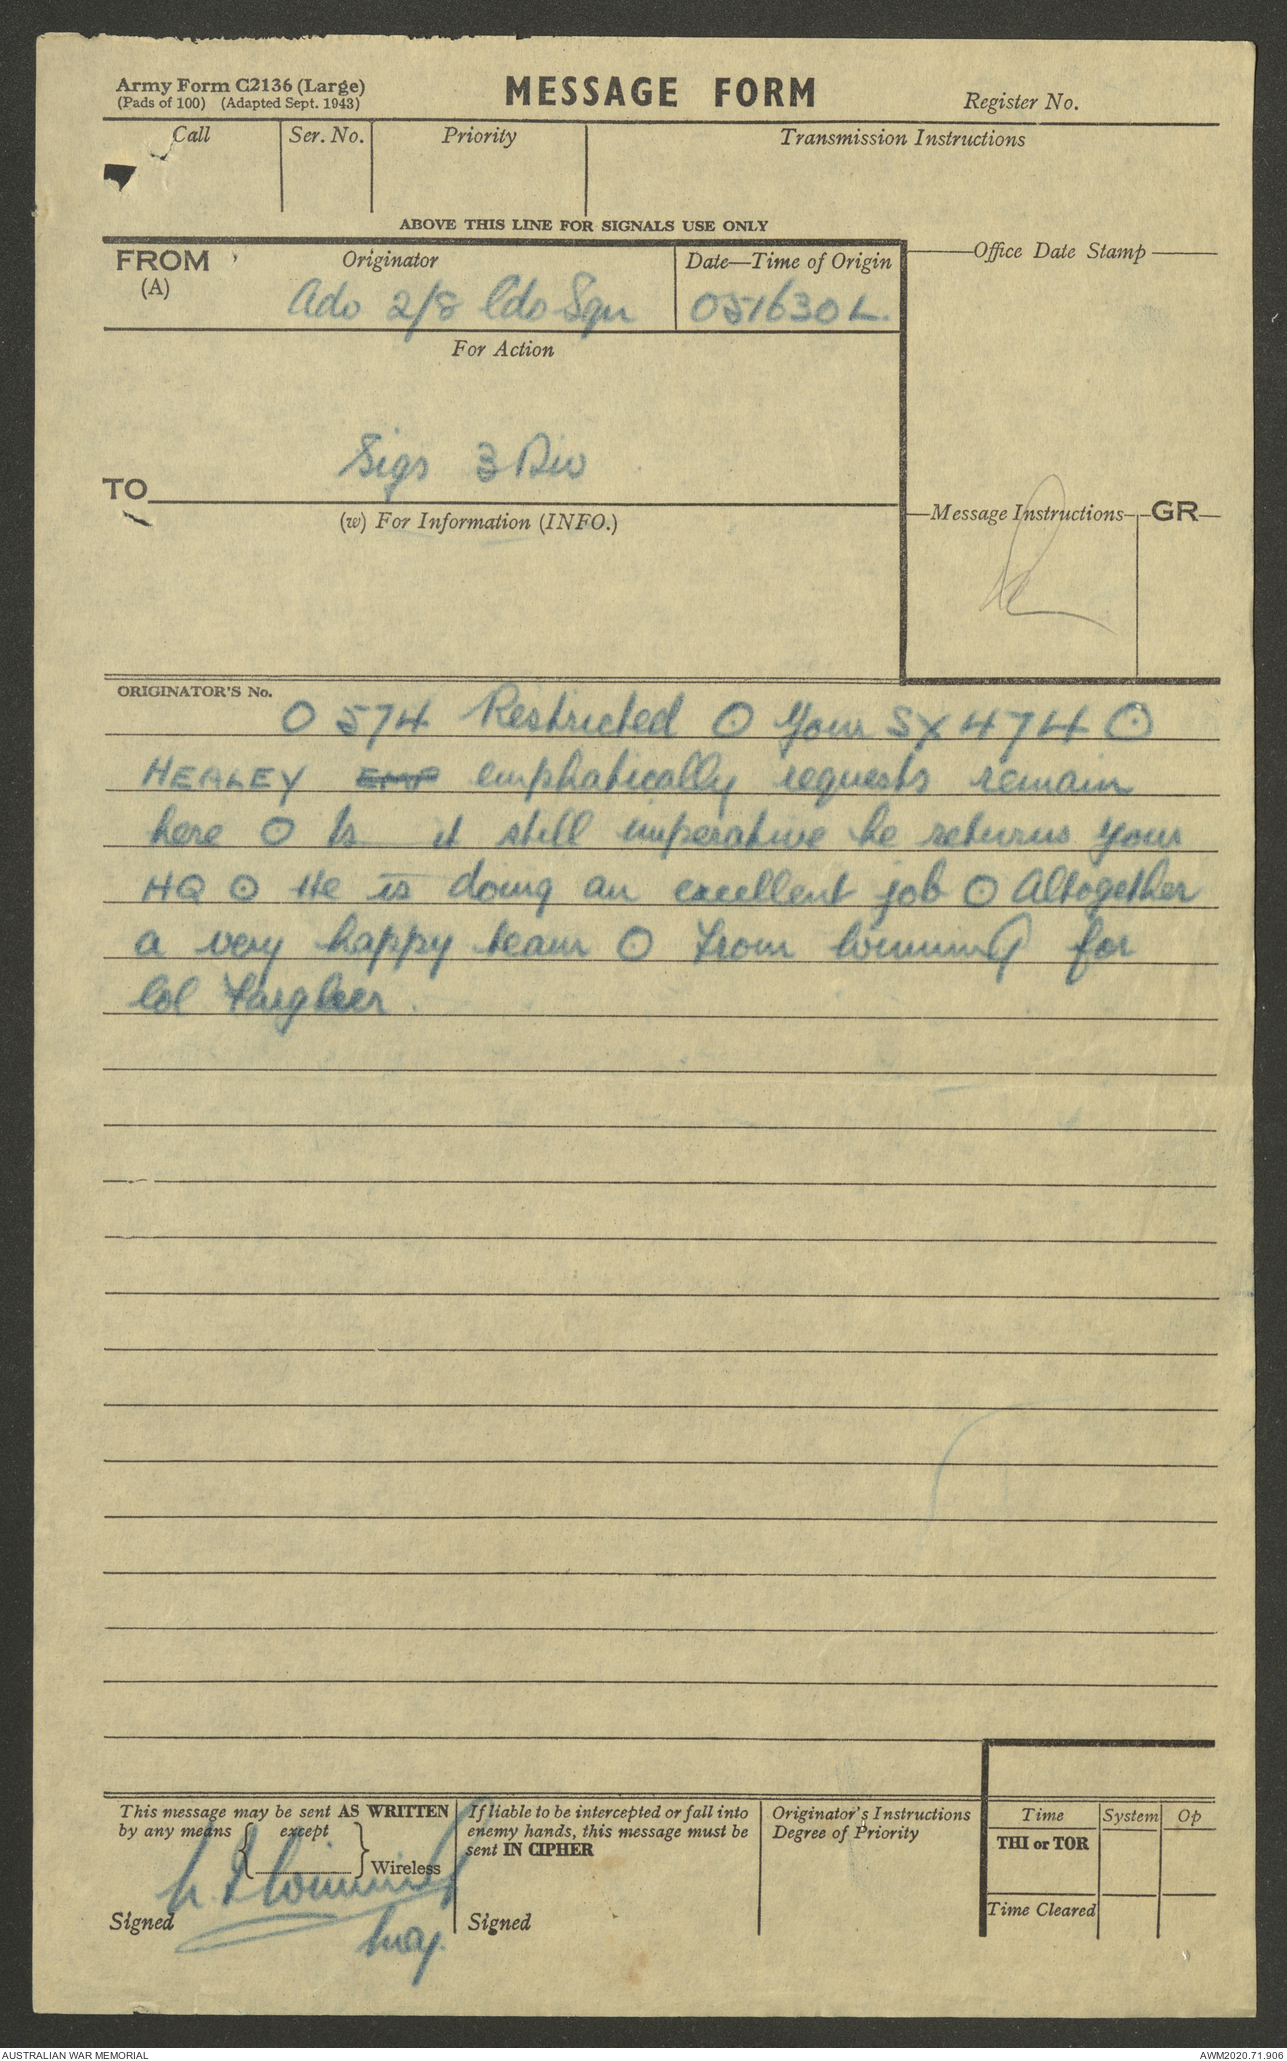 Army Form C2136 (Large)
(Pads of 100) (Adapted Sept. 1943)
MESSAGE FORM
Register No.
Call
Ser. No.
Priority
Transmission Instructions
ABOVE THIS LINE FOR SIGNALS USE ONLY
FROM
(A)
Originator
Date—Time of Origin
Office Date Stamp
Adv 2/8 Cdo Sqn
051630L.
For Action
Sigs 3 Div
TO
(w) For Information (INFO.)
Message Instructions
GR
ORIGINATOR'S No.
O 574 Restricted ⊙ Your SX 474 ⊙
HEALEY EMP emphatically requests remain
here ⊙ Is it still imperative he returns your
HQ ⊙ He is doing an excellent job ⊙ Altogether
a very happy team ⊙ From Winning for
Col
This message may be sent AS WRITTEN
by any means
except
Wireless
Signed
Maj.
If liable to be intercepted or fall into
enemy hands, this message must be
sent IN CIPHER
Signed
Originator's Instructions
Degree of Priority
Time
System
Op
THI or TOR
Time Cleared
AUSTRALIAN WAR MEMORIAL
AWM2020.71.906